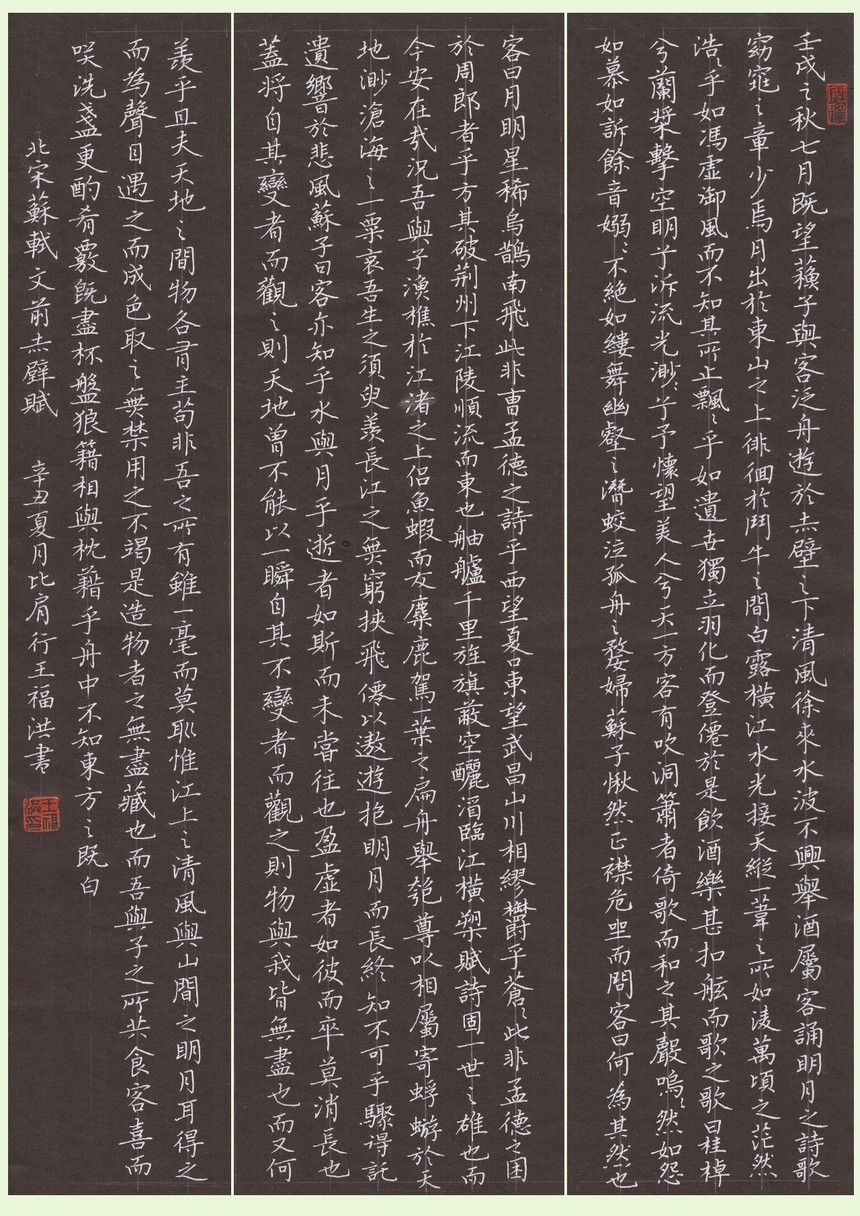 壬戌之秋七月既望蘇子與客泛舟遊於赤壁之下清風徐來水波不興舉酒屬客誦明月之詩歌
窈窕之章少焉月出於東山之上徘徊於鬥牛之間白露橫江水光接天縱一葦之所如淩萬頃之茫然
浩〻乎如馮虛御風而不知其所止飄〻乎如遺世獨立羽化而登僊於是飲酒樂甚扣舷而歌之歌曰桂棹
兮蘭槳擊空明兮泝流光渺〻兮予懷望美人兮天一方客有吹洞簫者倚歌而和之其聲嗚〻然如怨
如慕如訴餘音嫋〻不絕如縷舞幽壑之潛蛟泣孤舟之嫠婦蘇子愀然正襟危坐而問客曰何為其然也
客曰月明星稀烏鵲南飛此非曹孟德之詩乎西望夏口東望武昌山川相繆鬱乎蒼〻此非孟德之困
於周郎者乎方其破荊州下江陵順流而東也舳艫千里旌旗蔽空釃酒臨江橫槊賦詩固一世之雄也而
今安在哉況吾與子漁樵於江渚之上侶魚蝦而友麋鹿駕一葉之扁舟舉匏尊以相屬寄蜉蝣於天
地渺滄海之一粟哀吾生之須臾羨長江之無窮挾飛僊以遨遊抱明月而長終知不可乎驟得託
遺響於悲風蘇子曰客亦知乎水與月乎逝者如斯而未嘗往也盈虛者如彼而卒莫消長也
蓋將自其變者而觀之則天地曾不能以一瞬自其不變者而觀之則物與我皆無盡也而又何
羨乎且夫天地之間物各有主苟非吾之所有雖一毫而莫取惟江上之清風與山間之明月耳得之
而為聲目遇之而成色取之無禁用之不竭是造物者之無盡藏也而吾與子之所共食客喜而
笑洗盞更酌肴覈既盡杯盤狼籍相與枕藉乎舟中不知東方之既白
北宋蘇軾文前赤壁賦　辛丑夏月比肩行王福洪書
王福洪印